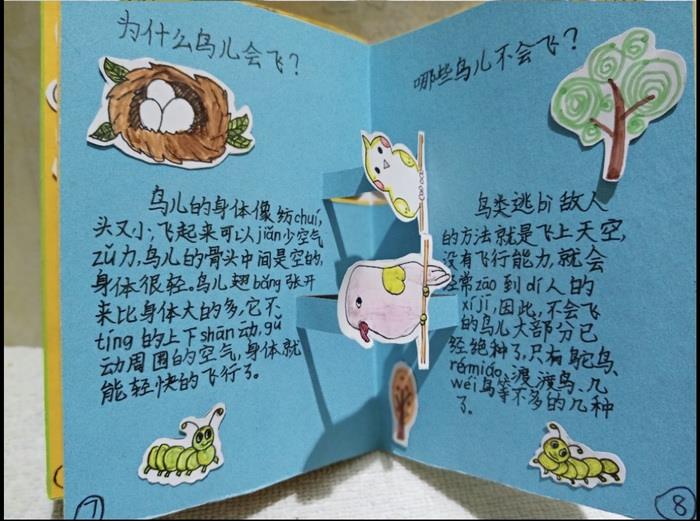 为什么鸟儿会飞？
鸟儿的身体像纺chuí,
头又小；飞起来可以jiǎn少空气
zǔ力,鸟儿的骨头中间是空的,
身体很轻。鸟儿翅bǎng张开
来比身体大的多,它不
tíng的上下shān动,gǔ
动周围的空气,身体就
能轻快的飞行了。
7
哪些鸟儿不会飞？
鸟类逃bì敌人
的方法就是飞上天空,
没有飞行能力,就会
经常zāo到dí人的
xíjī,因此,不会飞
的鸟儿大部分已
经绝种了,只有鸵鸟、
渡渡鸟、几
wéi鸟等不多的几种
了。
8